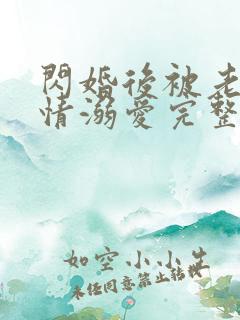 閃婚後被老
情溺愛完整
如空小小生
未任同意禁止转载